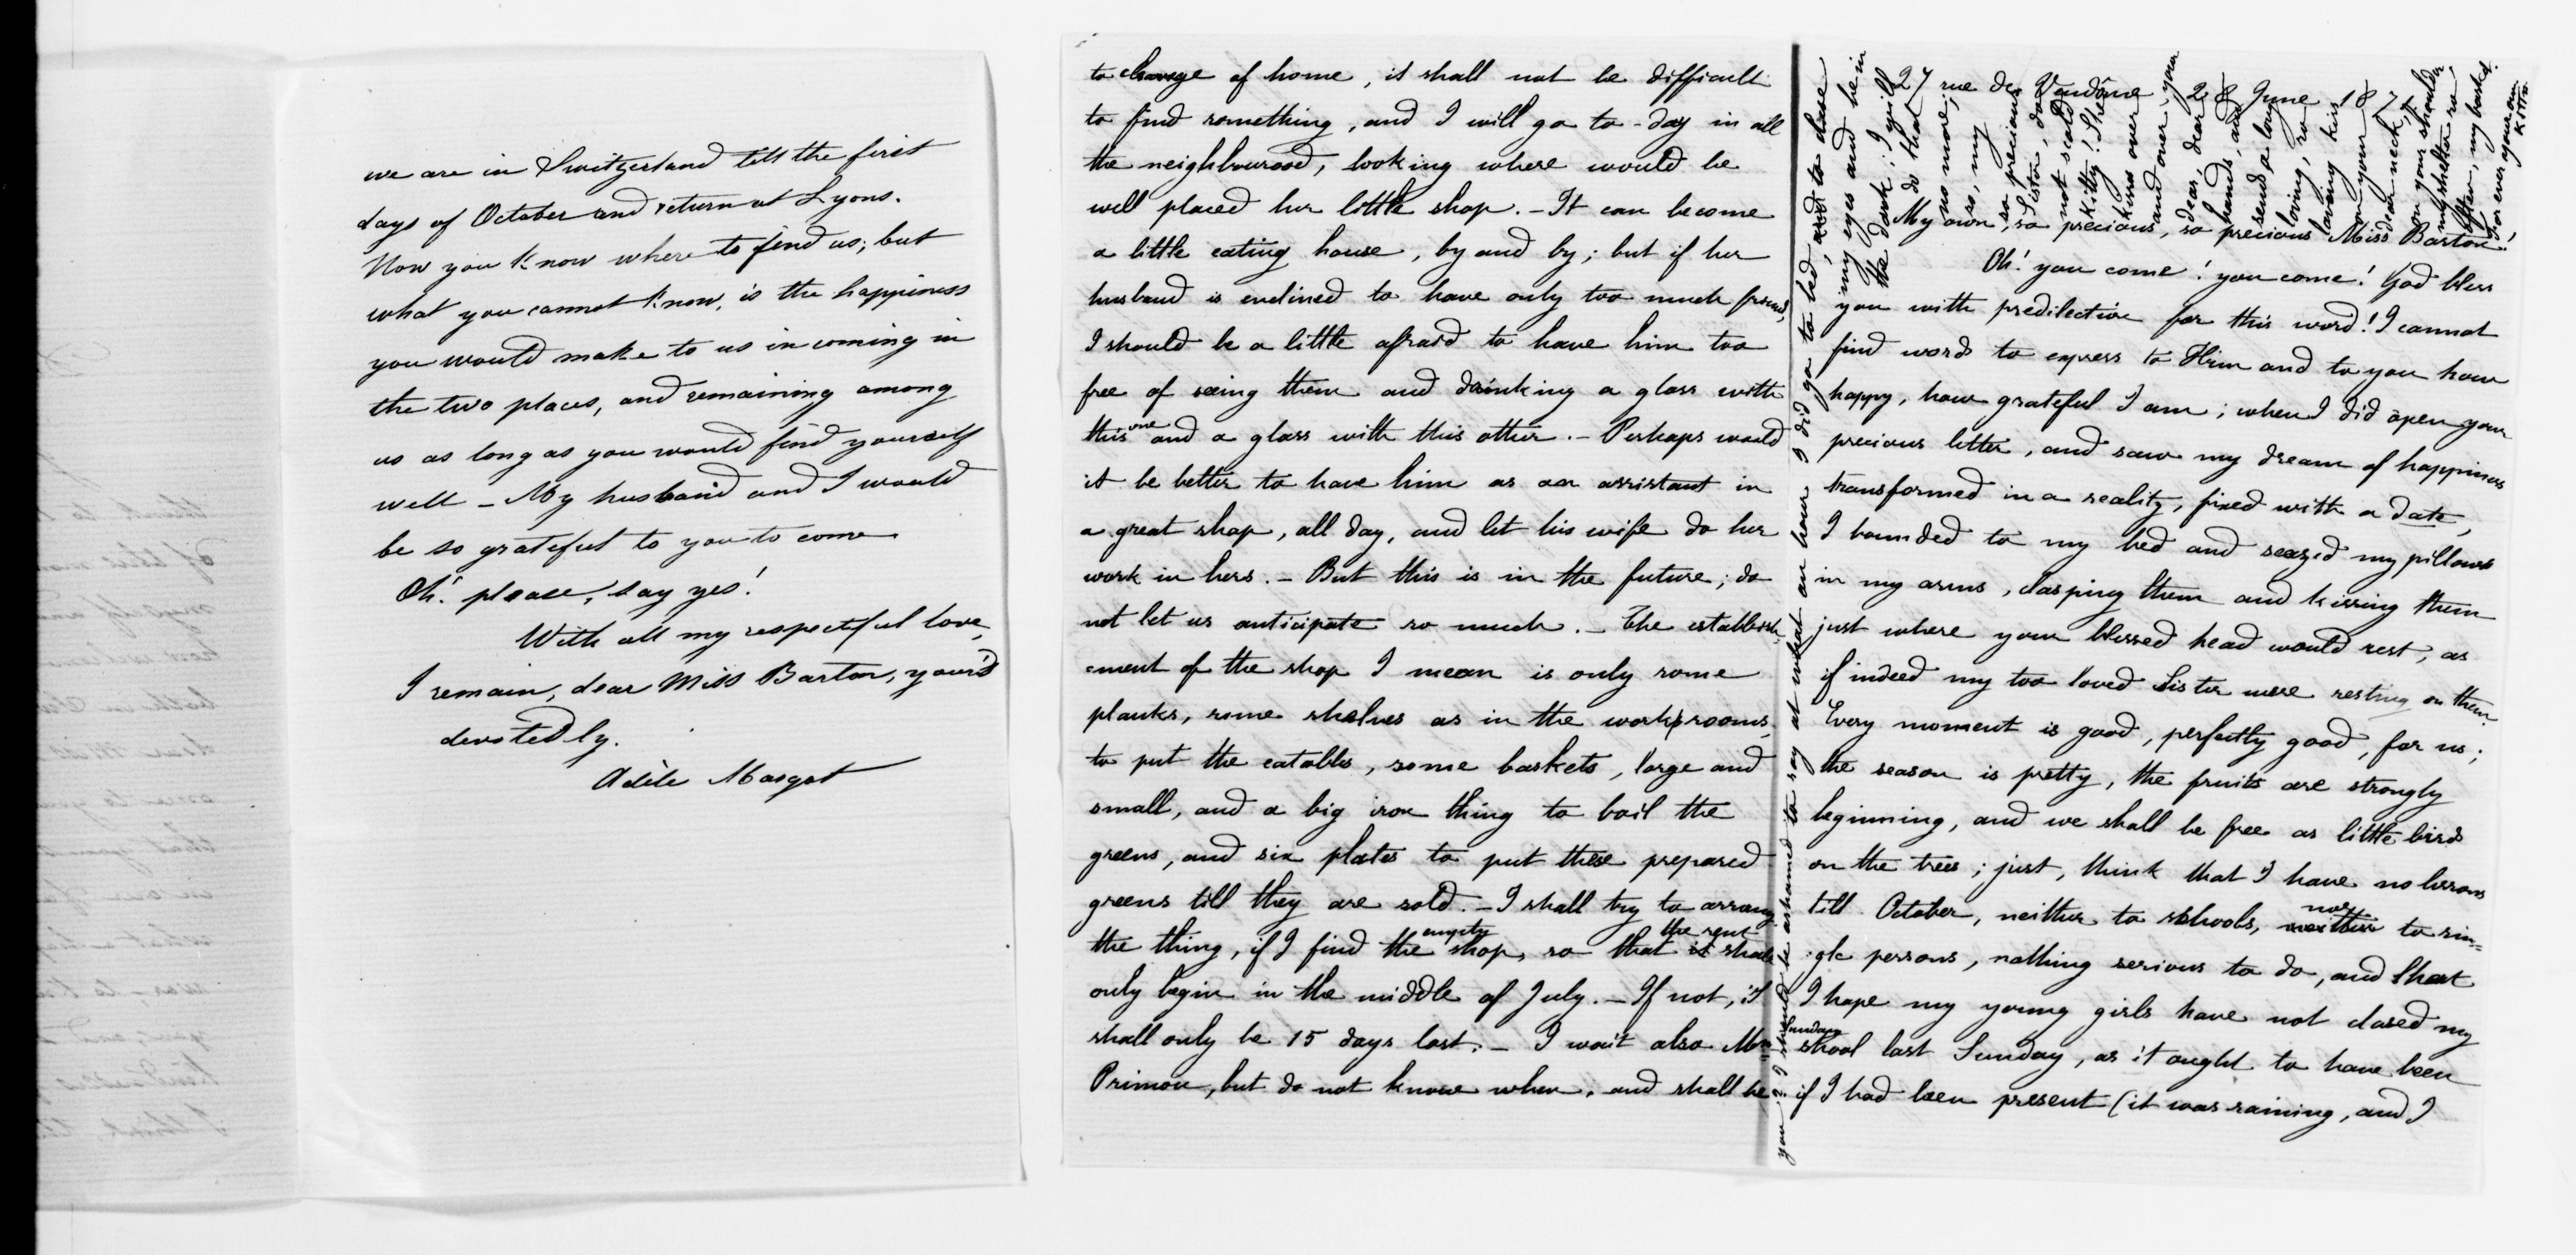 we are in Switzerland till the first
days of October and return at Lyons.
Now you know where to find us; but
what you cannot know, is the happiness
you would make to us in coming in
the two places, and remaining among
us as long as you would find yourself
well – My husband and I would
be so grateful to you to come
Oh! please, say yes!
With all my respectful love,
I remain, dear Miss Barton, your's
devotedly.
Adèle Margot
to change of home, it shall not be difficult
to find something, and I will go to-day in all
the neighbourood, looking where would be
well placed her little shop. – It can become
a little eating house, by and by; but if her
husband is enclined to have only too much friends,
I should be a little afraid to have him too
free of seeing them and drinking a glass with
this one and a glass with this other. – Perhaps would
it be better to have him as an assistant in
a great shop, all day, and let his wife do her
work in hers. – But this is in the future; do
not let us anticipate so much. – The establish
ement of the shop I mean is only some
planks, some shelves as in the workrooms,
to put the eatables, some baskets, large and
small, and a big iron thing to boil the
greens, and six plates to put these prepared
greens till they are sold. – I shall try to arrang
the thing, if I find the empty shop, so that the rent shall
only begin in the middle of July. – If not, it
shall only be 15 days lost. – I wait also Mon
Primou, but do not know when, and shall be
27 rue de Vendôme 28 June 187
My own, so precious, so precious Miss Barton!
Oh! you come! you come! God bless
you with predilection for this word! I cannot
find words to express to Him and to you how
happy, how grateful I am; when I did open your
precious letter, and saw my dream of happiness
transformed in a reality, fixed with a date,
I bounded to my bed and seazed my pillows
in my arms, clasping them and kissing them
just where your blessed head would rest, as
if indeed my too loved Sister were resting on them.
Every moment is good, perfectly good, for us;
the season is pretty, the fruits are strongly
beginning, and we shall be free as little birds
on the trees; just, think that I have no lessons
till October, neither to schools, nor to sin=
gle persons, nothing serious to do, and that
I hope my young girls have not closed my
Sunday shool last Sunday, as it ought to have been
if I had been present (it was raining, and I
you I should be ashamed to say at what an hour I did go to bed, and to have
my eyes and be in
the dark; I will
do that
no more,
so, my
so precious
Sister, do
not scold
Kitty! She
kisses over
and over your
dear, dear
hands, and
send a long
loving, so
loving kiss
on your
dear neck,
on your shoulder
my shelter so
often, my basket.
For ever your own
Kitta.